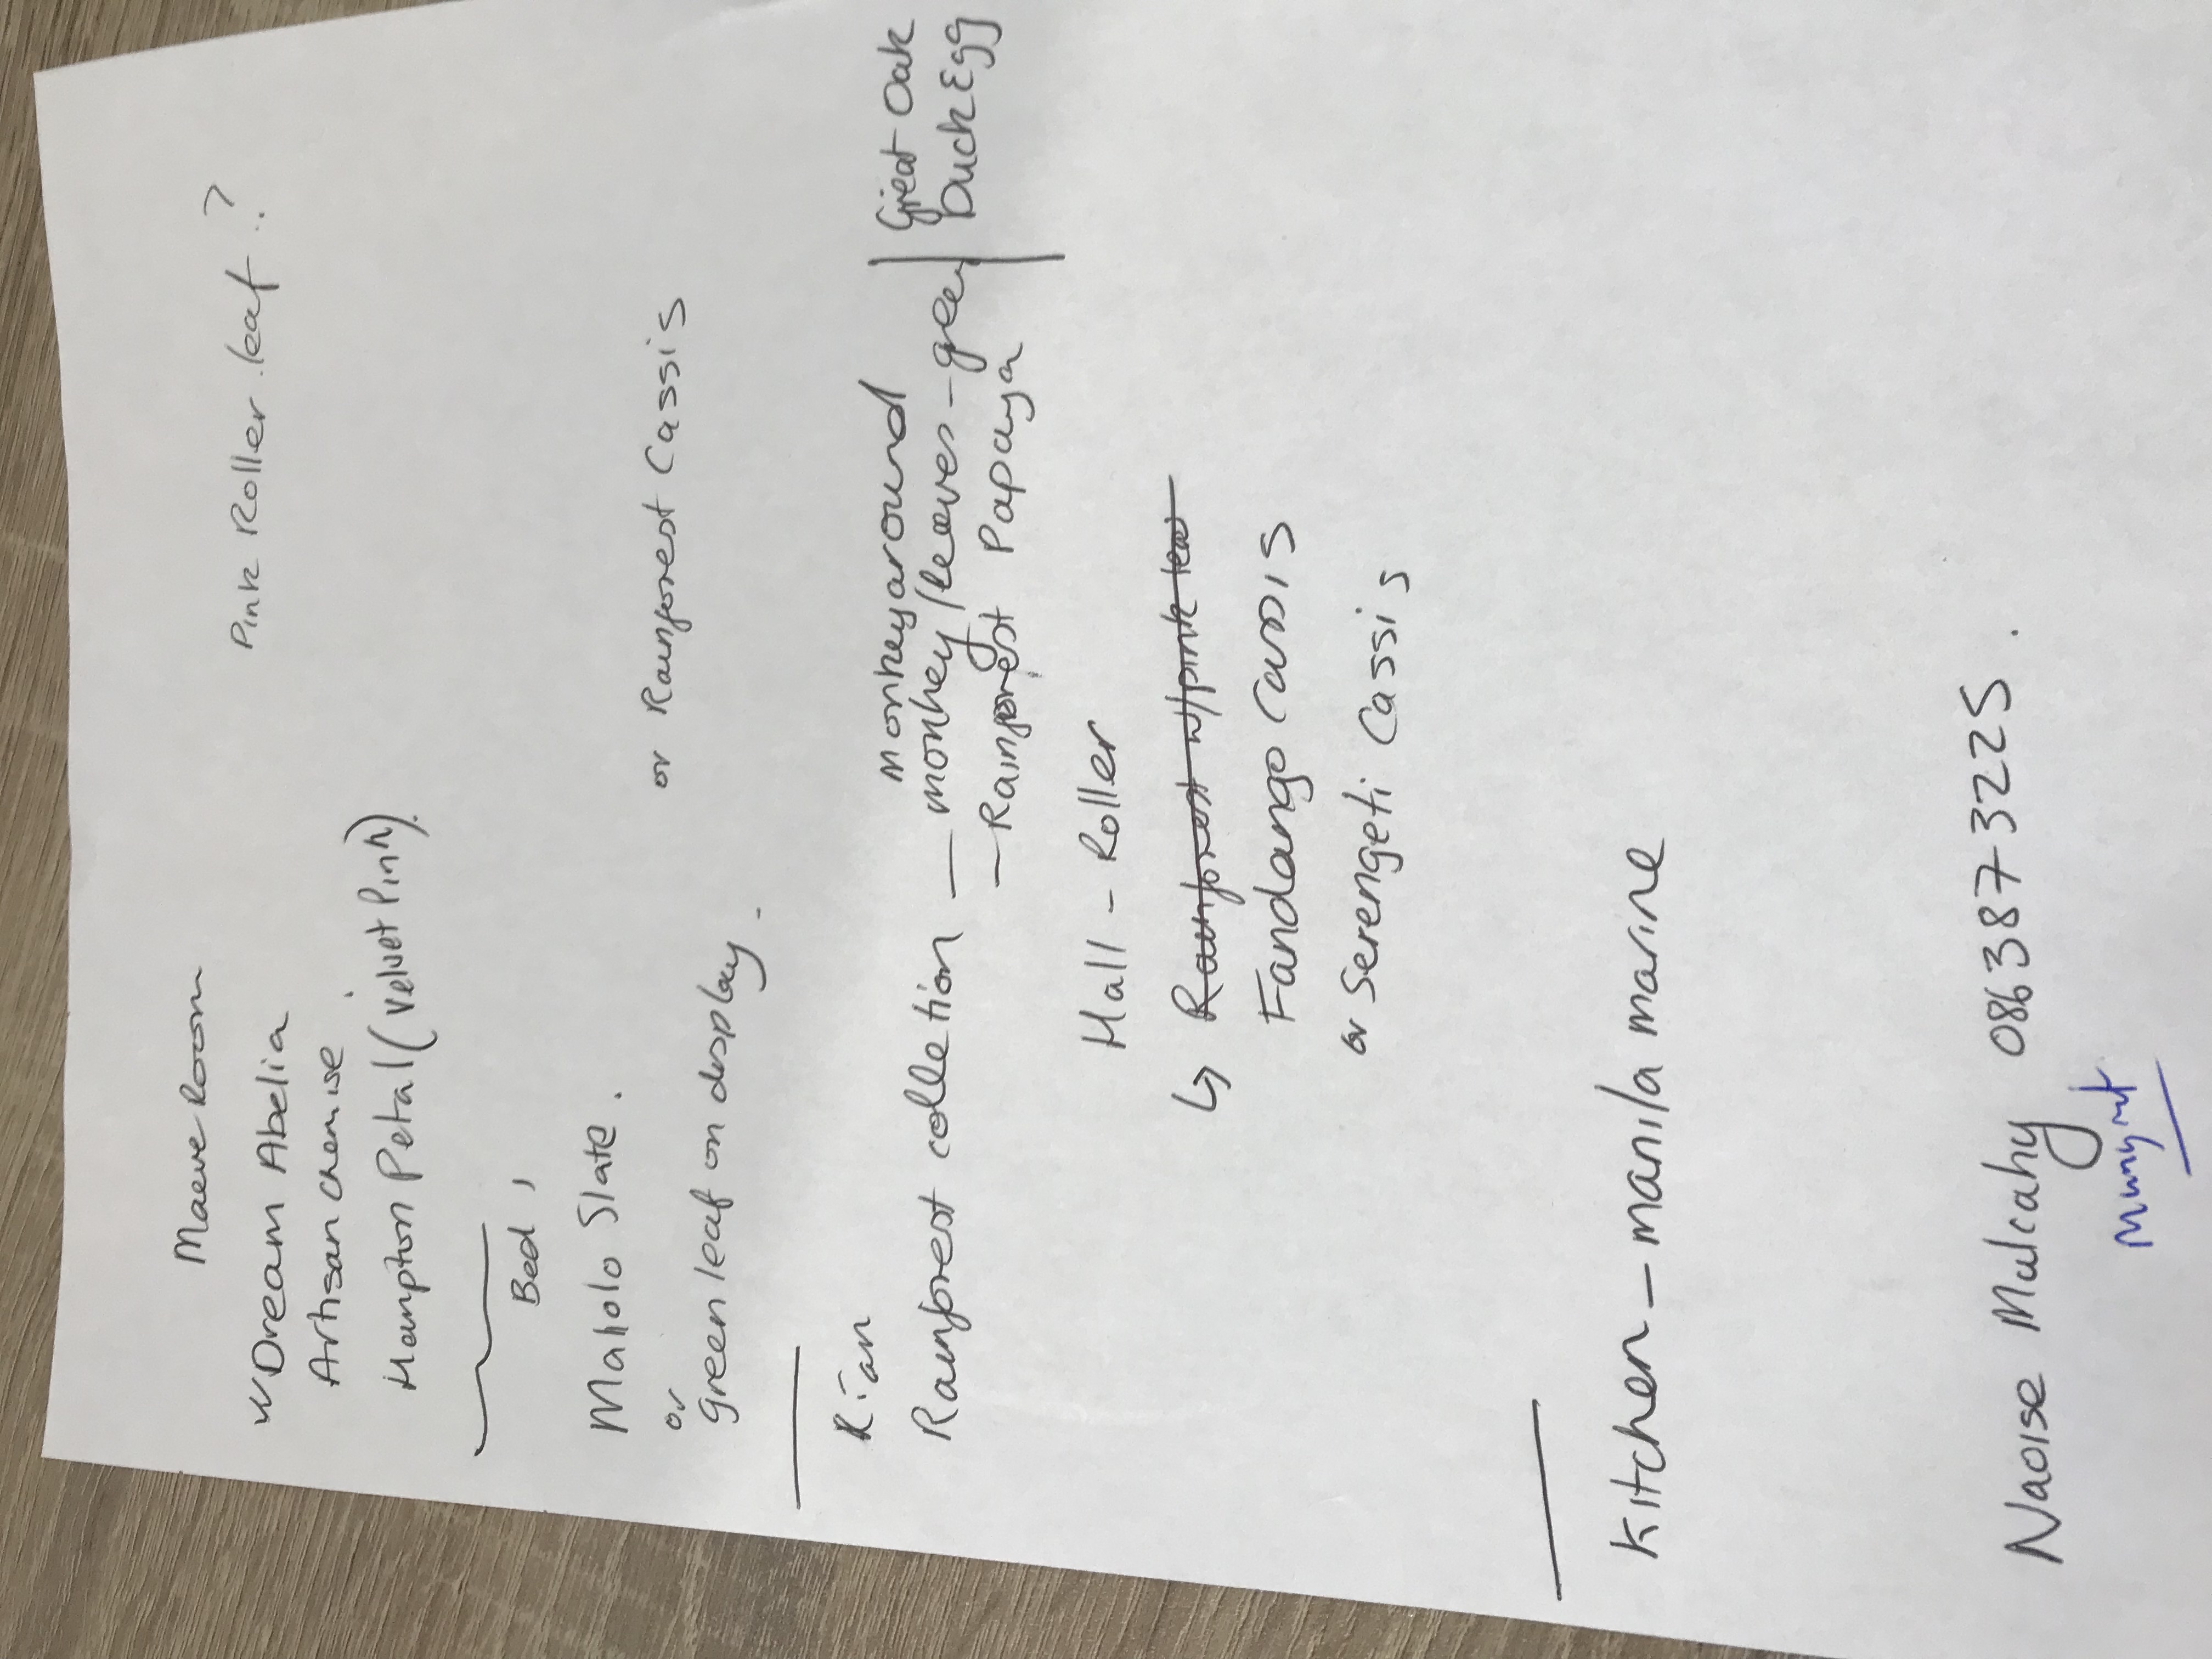 Maeve Room
Dream Abelia
Artisan chemise
Pink Roller leaf ?
Hampton Petal (Velvet Pink).
Bed,
Maholo Slate.
or
green leaf on display.
or Rainforest Cassis
Rian
Rainforest colletion
monkeyaround
— monkey/leaves - grey
— Rainforest Papaya
Great Oak
Duck Egg
Hall - Roller
↳ Rainforest w/pink leaf
Fandango Cassis
or Serengeti Cassis
Kitchen - manila marine
Naoise Mulcahy 0863873225.